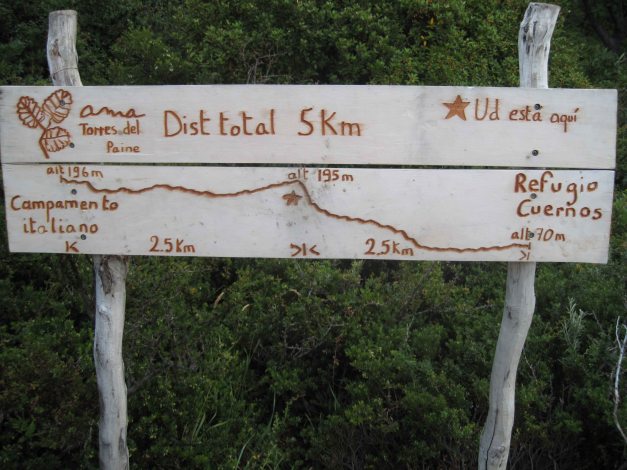 ama
Torres del
Paine
Dist total 5Km
Ud está aquí
alt 196m
alt 195m
Campamento
italiano
Refugio
Cuernos
alt 70m
2.5Km
2.5Km